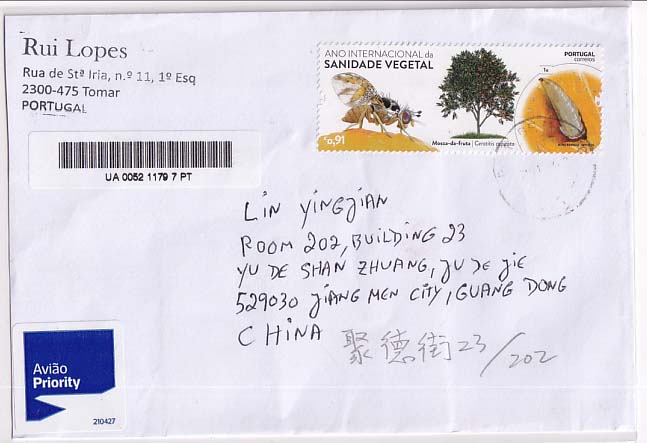 Rui Lopes
Rua de Stª Iria, n.º 11, 1º Esq
2300-475 Tomar
PORTUGAL
ANO INTERNACIONAL da
SANIDADE VEGETAL
€0,91
Mosca-da-fruta | Ceratitis capitata
PORTUGAL
correios
UA 0052 1179 7 PT
LIN YINGJIAN
ROOM 202, BUILDING 23
YU DE SHAN ZHUANG, JU DE JIE
529030 JIANG MEN CITY, GUANG DONG
CHINA 聚德街23/202
Avião
Priority
210427